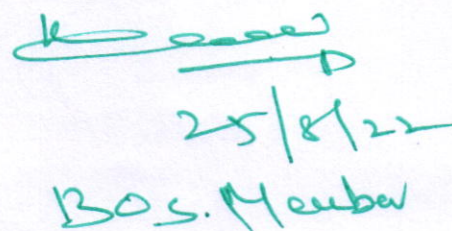 25/8/22
BOS. Member